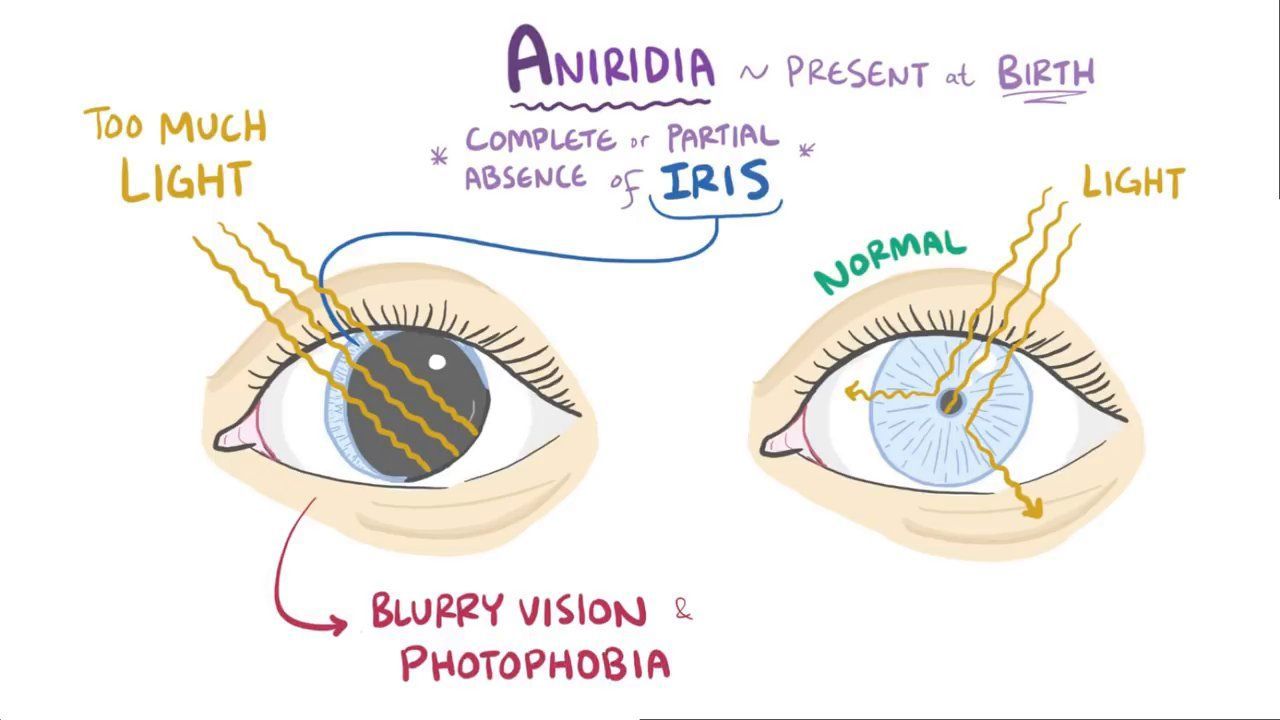 ANIRIDIA ~ PRESENT at BIRTH
* COMPLETE or PARTIAL
ABSENCE of IRIS *
TOO MUCH
LIGHT
NORMAL
LIGHT
BLURRY VISION &
PHOTOPHOBIA